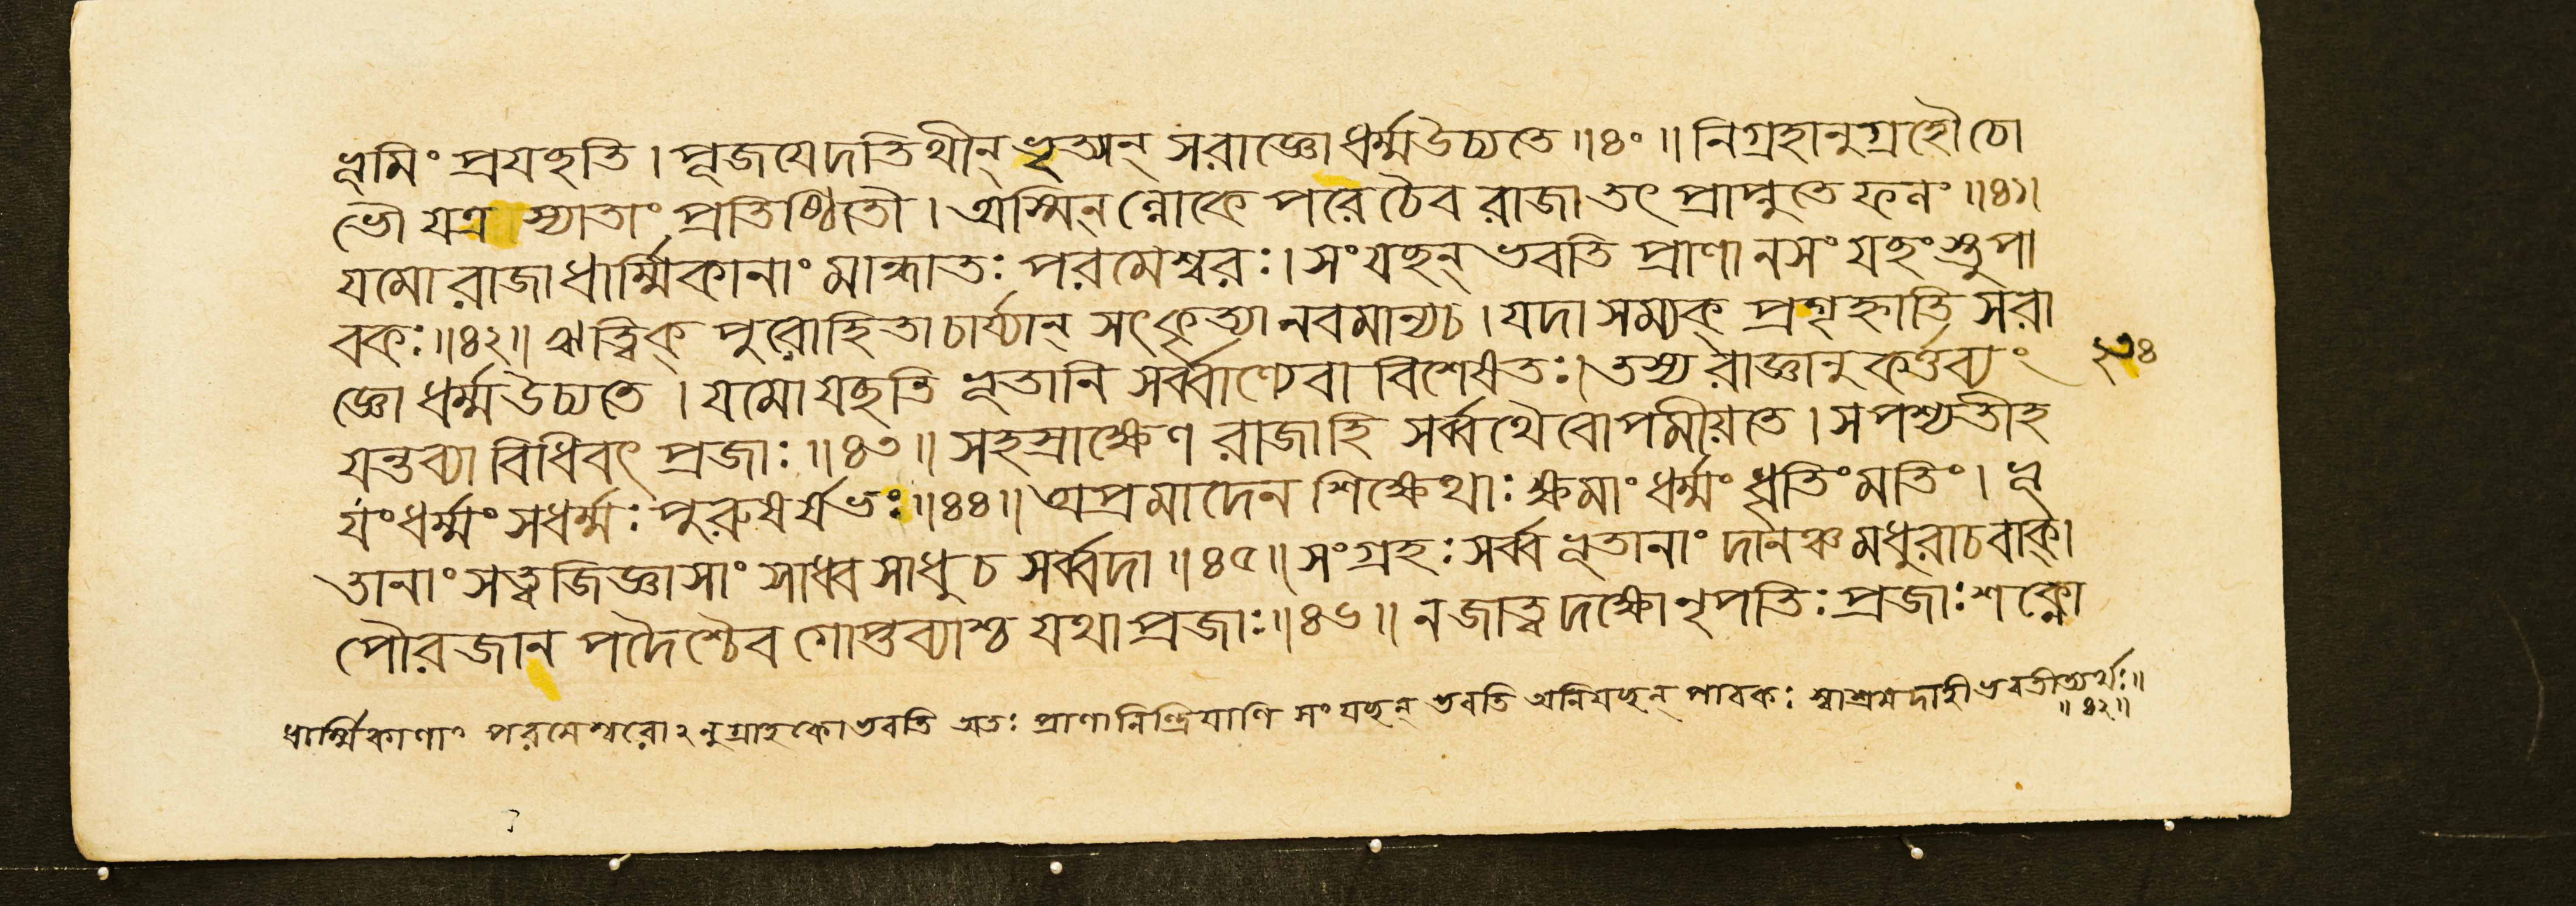 ভূমিং প্রযচ্ছতি । পূজয়েদতিথীন্ ভৃত্যান্ সরাজ্ঞোধর্ম্মউচ্যতে ॥৪০॥ নিগ্রহানুগ্রহৌ চো
ভৌ যত্র স্যাতাং প্রতিষ্ঠিতৌ । অস্মিন্ ল্লোকে পরেচৈব রাজা তৎ প্রাপ্নুতে ফলং ॥৪১॥
যমো রাজা ধার্ম্মিকানাং মান্ধাতঃ পরমেশ্বরঃ। সংযচ্ছন্ ভবতি প্রাণানসংযচ্ছংস্তুপা
বকঃ॥৪২॥ ঋত্বিক্ পুরোহিতাচার্য্যান্ সৎকৃত্যানবমান্যচ । যদা সম্যক্ প্রগৃহ্নাতি সরা
জ্ঞো ধর্ম্মউচ্যতে । যমো যচ্ছতি ভূতানি সর্ব্বাণ্যেবা বিশেষতঃ। তস্য রাজ্ঞানুকর্ত্তব্যং
২৩৪
যন্তব্যা বিধিবৎ প্রজাঃ ॥৪৩॥ সহস্রাক্ষেণ রাজাহি সর্ব্বথৈবোপমীয়তে । সপশ্যতীহ
যংধর্ম্মং সধর্ম্মঃ পুরুষর্ষভঃ॥৪৪॥ অপ্রমাদেন শিক্ষেথাঃ ক্ষমাং ধর্ম্মং ধৃতিং মতিং। ভূ
তানাং সত্ত্বজিজ্ঞাসাং সাধ্ব সাধু চ সর্ব্বদা ॥৪৫॥ সংগ্রহঃ সর্ব্ব ভূতানাং দানঞ্চ মধুরাচবাক্।
পৌরজান পদৈশ্চৈব গোপ্তব্যাশ্চ যথা প্রজাঃ॥৪৬॥ নজাত্বদক্ষোনৃপতিঃ প্রজাঃ শক্নো
ধার্ম্মিকাণাং পরমেশ্বরোঽনুগ্রাহকোভবতি অতঃ প্রাণানিন্দ্রিয়াণি সংযচ্ছন্ ভবতি অনিযচ্ছন্ পাবকঃ স্বাশ্রমদাহী ভবতীত্যর্থঃ॥
॥৪২॥